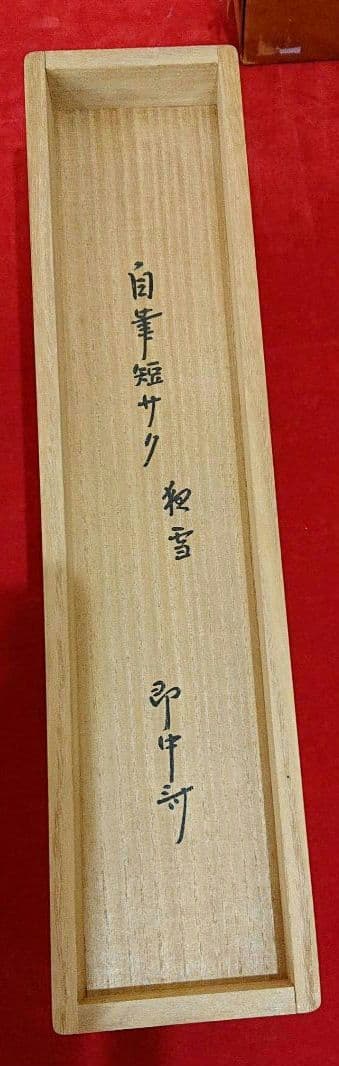 自筆短サク
夜雪
即中